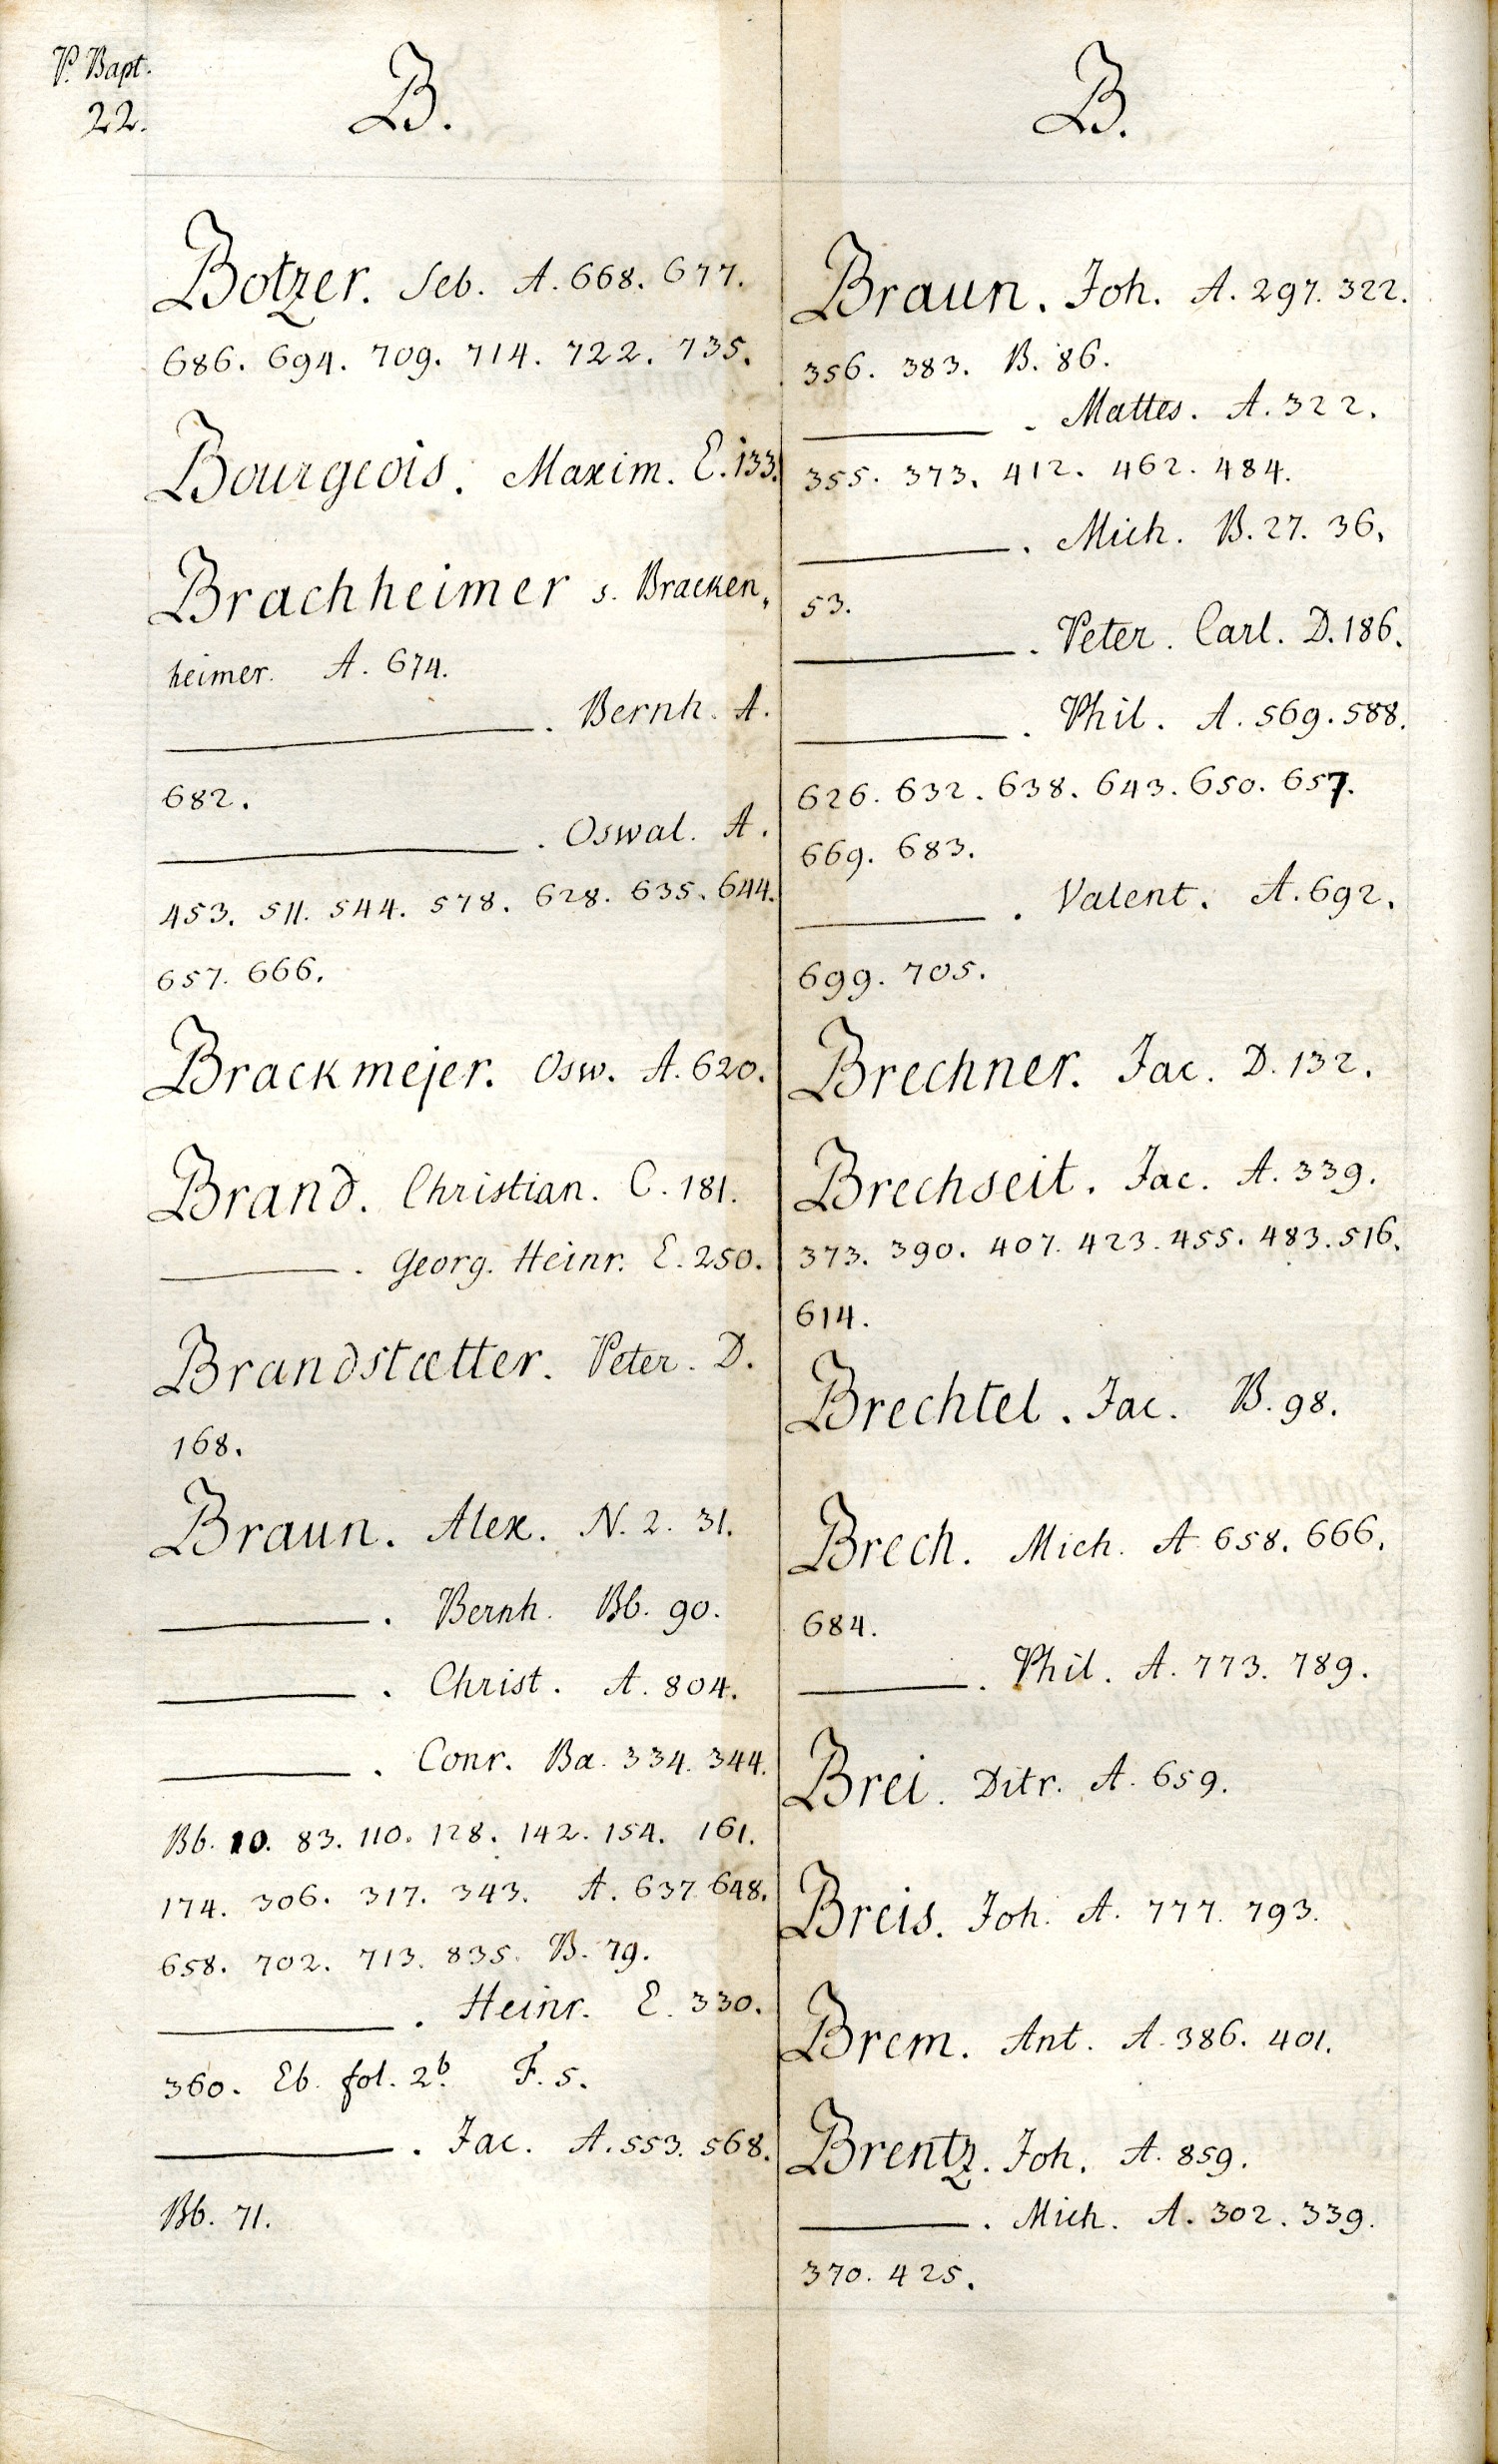 P. Bapt.
22.
B.
Botzer. Seb. A. 668. 677.
686. 694. 709. 714. 722. 735.
Bourgeois. Maxim. E. 133.
Brachheimer s. Bracken„
heimer. A. 674.
———. Bernh. A.
682.
———. Oswal. A.
453. 511. 544. 578. 628. 635. 644.
657. 666.
Brackmejer. Osw. A. 620.
Brand. Christian. C. 181.
———. Georg. Heinr. E. 250.
Brandstætter. Peter. D.
168.
Braun. Alex. N. 2. 31.
———. Bernh. Bb. 90.
———. Christ. A. 804.
———. Conr. Ba. 334. 344.
Bb. 10. 83. 110. 128. 142. 154. 161.
174. 306. 317. 343. A. 637 648.
658. 702. 713. 835. B. 79.
———. Heinr. E. 330.
360. Eb. fol. 2b. F. 5.
———. Jac. A. 553. 568.
Bb. 71.
B.
Braun. Joh. A. 297. 322.
356. 383. B. 86.
———. Mattes. A. 322.
355. 373. 412. 462. 484.
———. Mich. B. 27. 36.
53.
———. Peter. Carl. D. 186.
———. Phil. A. 569. 588.
626. 632. 638. 643. 650. 657.
669. 683.
———. Valent. A. 692.
699. 705.
Brechner. Jac. D. 132.
Brechseit. Jac. A. 339.
373. 390. 407. 423. 455. 483. 516.
614.
Brechtel. Jac. B. 98.
Brech. Mich. A 658. 666.
684.
———. Phil. A. 773. 789.
Brei. Ditr. A. 659.
Breis. Joh. A. 777. 793.
Brem. Ant. A. 386. 401.
Brentz. Joh. A. 859.
———. Mich. A. 302. 339.
370. 425.